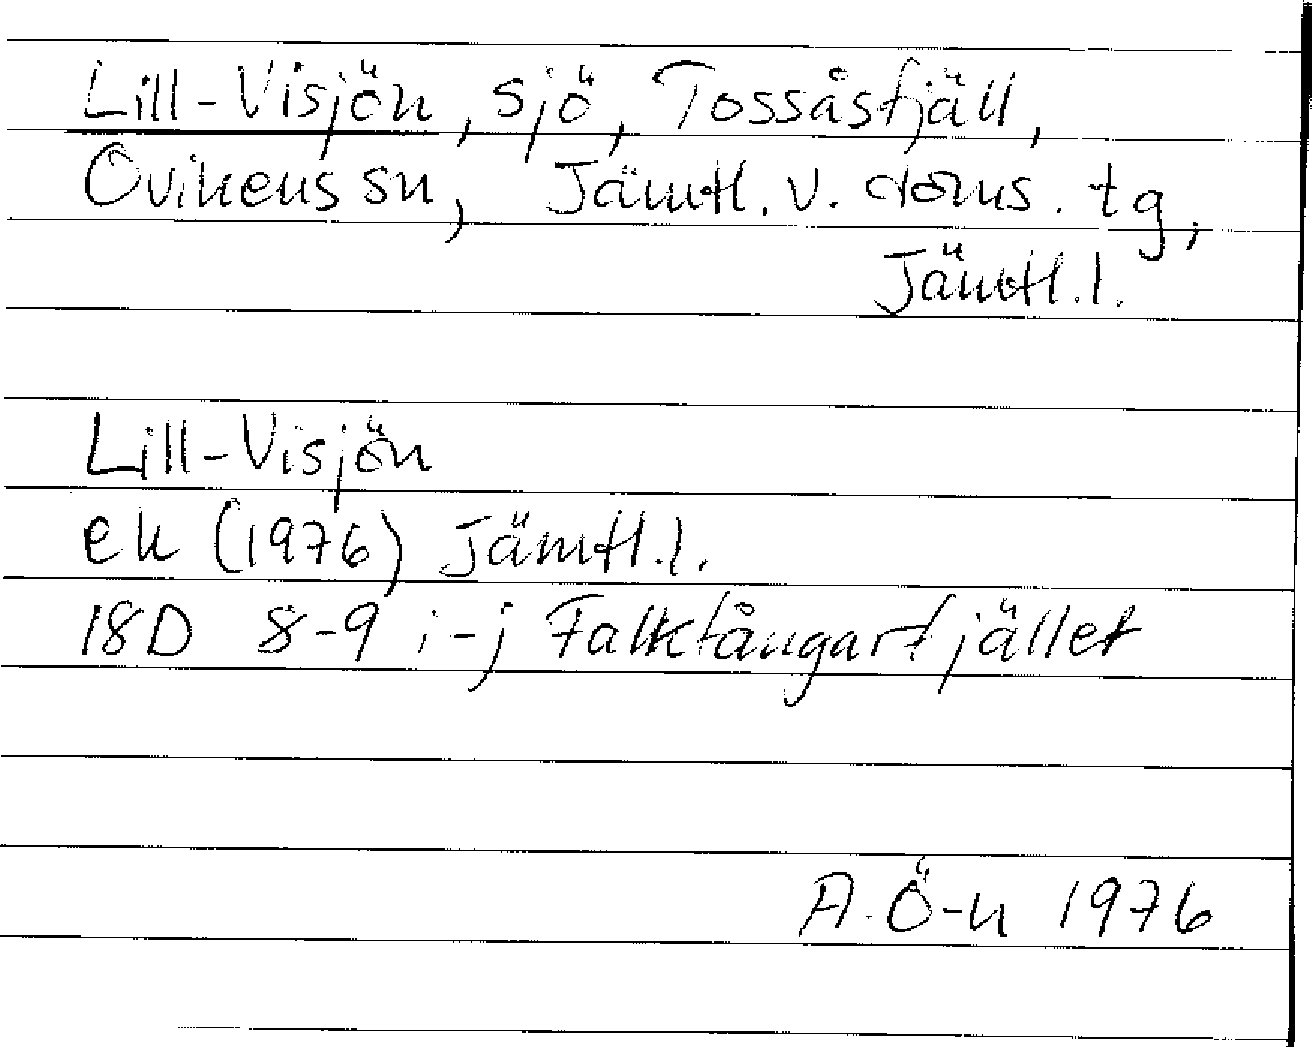 Lill-Visjön, sjö, Tossåsfjäll,
Ovikens sn, Jämtl. v. doms. tg,
Jämtl.l.
Lill-Visjön
ek (1976) Jämtl.l.
18D 8-9 i-j Falkfångarfjället
A. Ö-n 1976